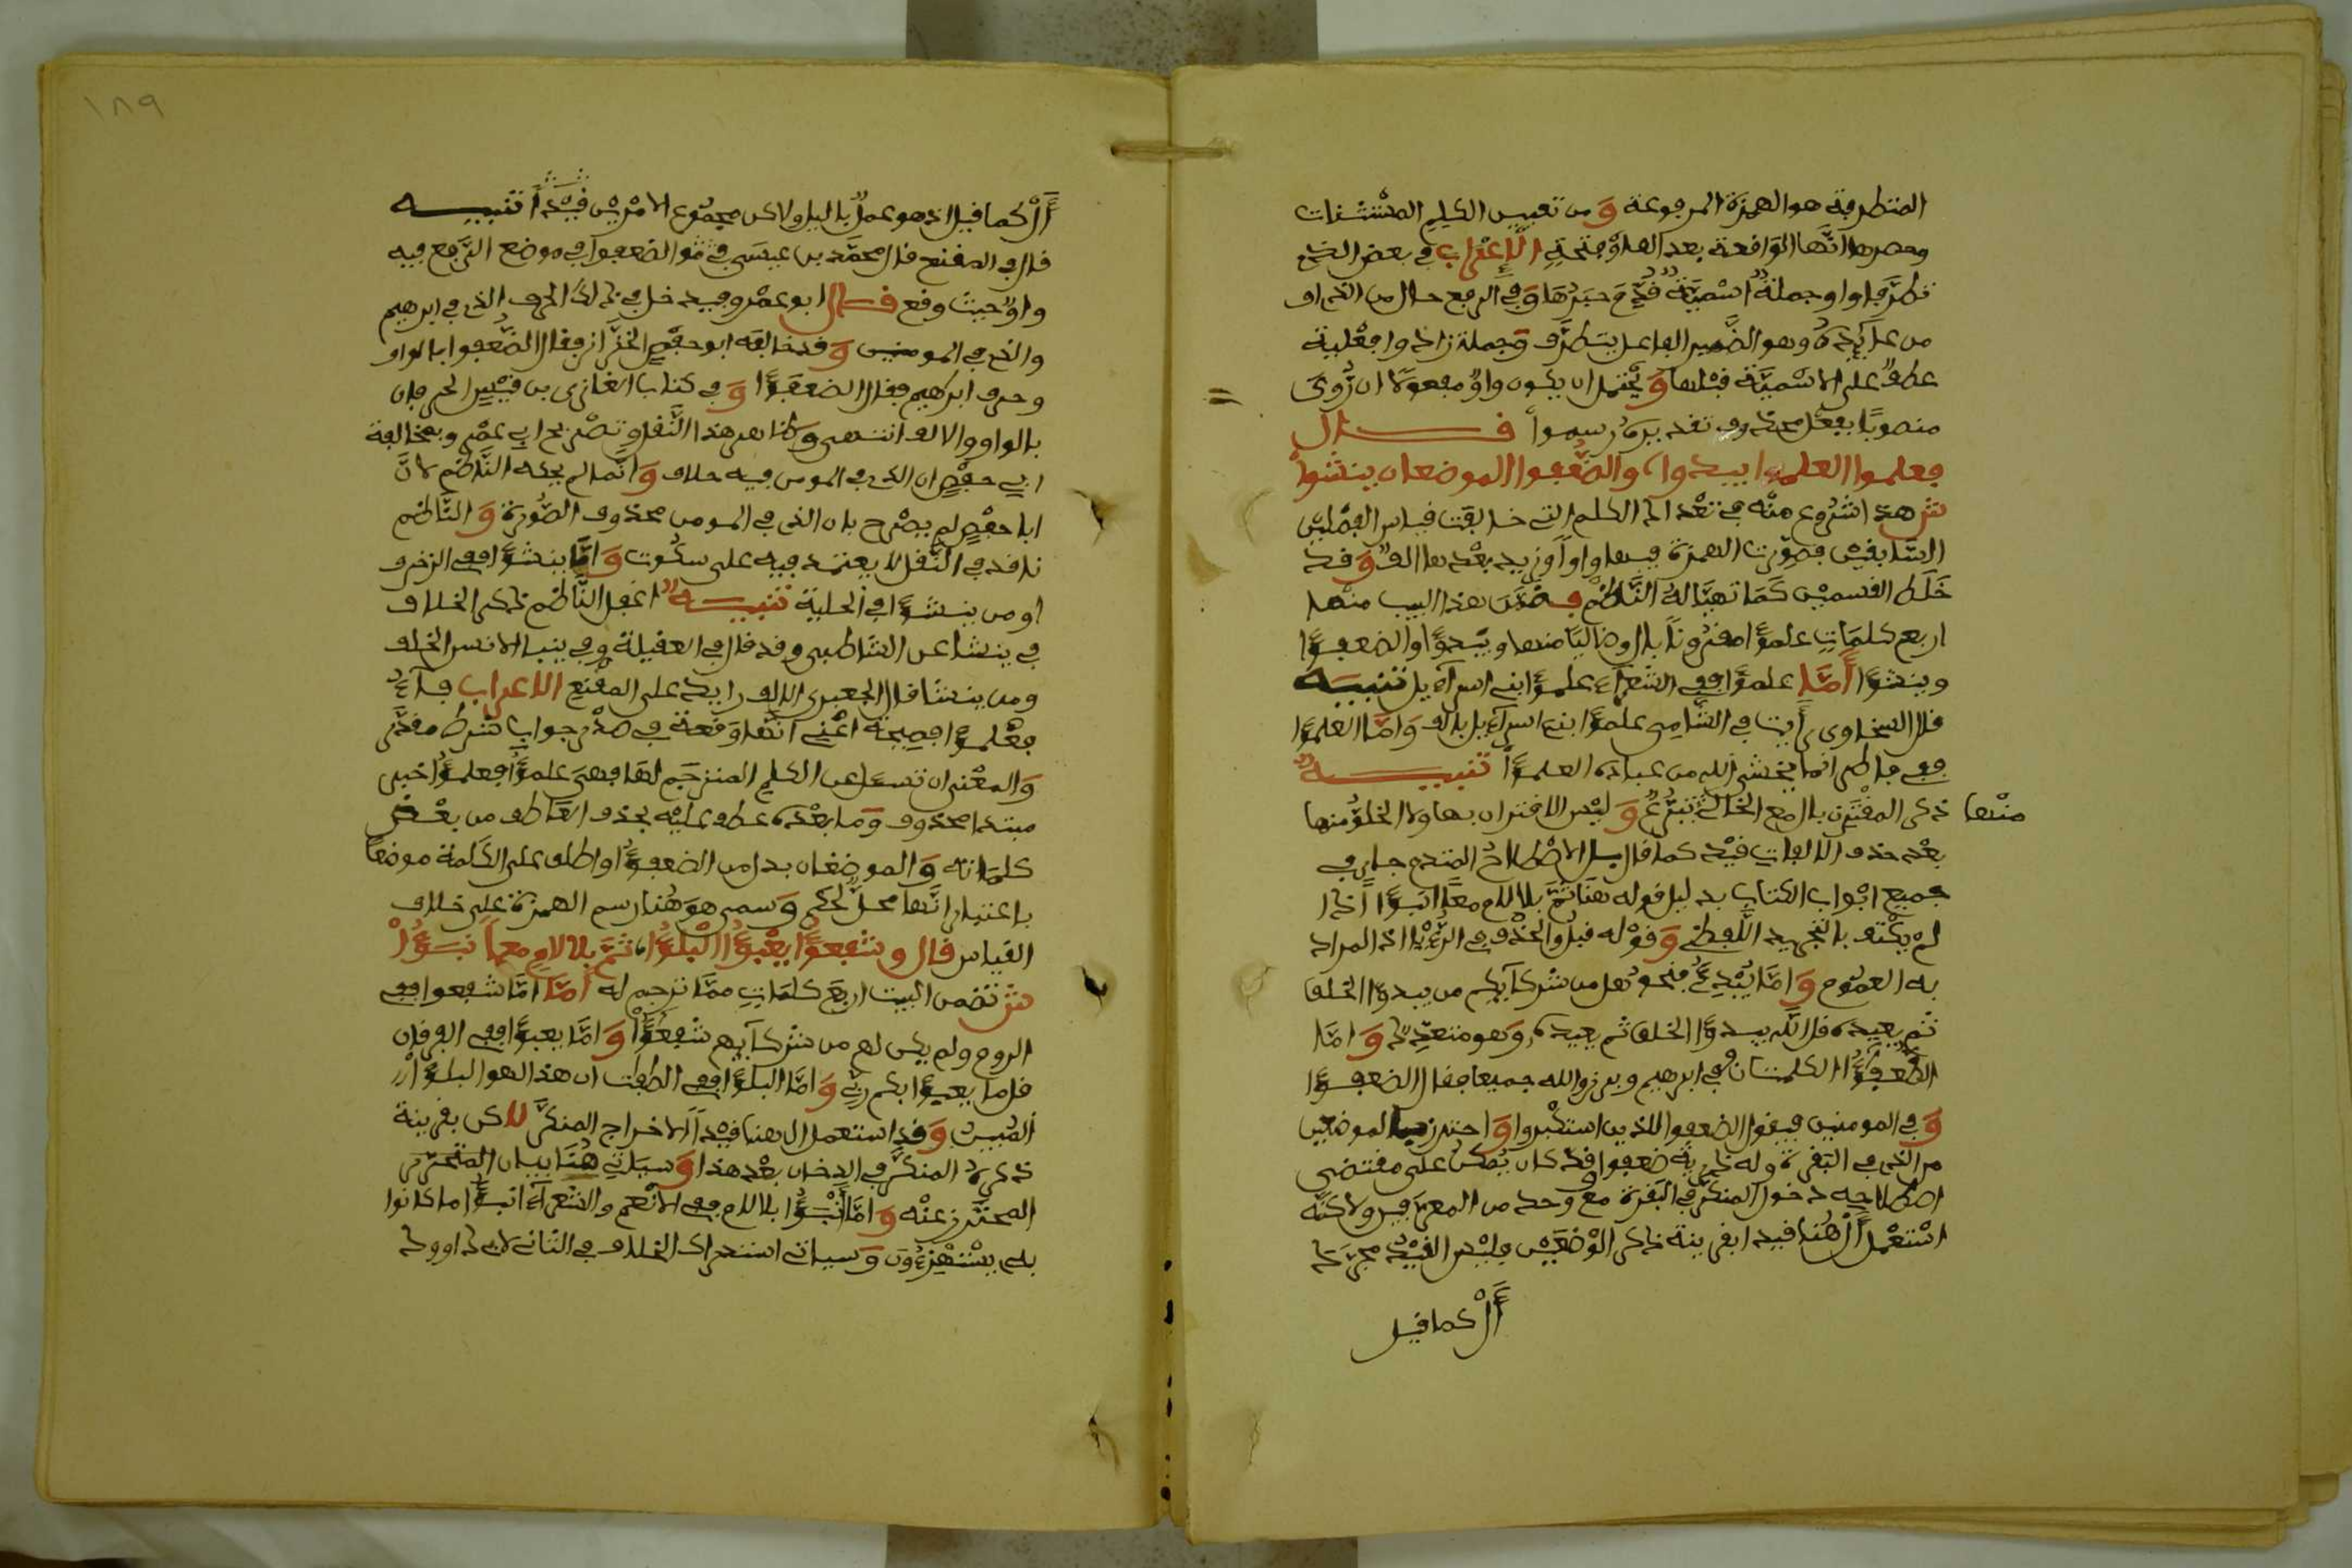 المتطرفة هو الهمزة المرفوعة و من تعيين الكلم المستثنات
وحصرها انها الواقعة بعد الف او فتحة الاعراب في بعض النسخ
تطرفا واو جملة اسمية قدم خبرها وفي الرفع حال من الذي او
من عايده وهو الضمير الفاعل بتطرف وجملة زادوا فعلية
عطف على الاسمية قبلها و يحتمل ان يكون واو مفعولا ان روى
منصوبا بفعل محذوف تقديره رسموا قال
فعلموا العلموا يبدوا والضعفوا الموضعان ينشوا
ش هذا شروع منه في تعداد الكلم التي خالفت قياس الفصلين
السابقين فصورت الهمزة فيها واوا وزيد بعدها الف و قد
خلط القسمين كما تهيا له الناظم فضمن هذا البيت منها
اربع كلمات علموا مقرونا بال وخاليا منها ويبدوا والضعفوا
وينشوا اما علموا ففي الشعراء علموا بني اسراءيل تنبيه
قال السخاوي رأيت في الشامي علموا بني اسراءيل بالف واما العلموا
ففي فاطر انما يخشى الله من عباده العلموا تنبيه
منها ذكر المقترن بال مع الخالي تبرع و ليس الاقتران بها ولا الخلو منها
بعد حذف الالفات قيد كما قال بل الاصطلاح المتقدم جار في
جميع ابواب الكتاب بدليل قوله هنا ثم بلا لام معا انبؤا اذا
لم يكتف بالتجريد اللفظي و قوله قبل والحذف في الرءيا اذ المراد
به العموم و اما يبدئ فنحو هل من شركايكم من يبدوا الخلق
ثم يعيده قل الله يبدوا الخلق ثم يعيده وهو متعدد و اما
الضعفوا الكلمتان ففي ابرهيم وبرزوا لله جميعا فقال الضعفوا
و في المومنين فيقول الضعفوا للذين استكبروا و احترز بالموضعين
من الذي في البقرة وله ذرية ضعفوا قد كان يمكن على مقتضى
اصطلاحه دخول المنكر في البقرة مع وحد من المعرفين ولاكنه
استعمل ال هنا قيدا بقرينة ذكر الوضعين فليس القيد مجرد
ال كما قيل
١٨٩
ال كما قيل اذ هو عمل باليل ولاكن مجموع الامرين قيدا تنبيه
قال في المقنع قال محمد بن عيسى في ثوا الضعفوا في موضع الرفع فيه
واو حيث وقع قال ابو عمرو فيدخل في ذلك الحرف الذي في ابرهيم
والذي في المومنين و قد خالفه ابو حفص الخزاز فقال الضعفوا بالواو
وحرف ابرهيم فقال الضعفوا و في كتاب الغازي بن قيس الحرفان
بالواو والالف انتهى وظاهر هذا النقل وتصريح ابي عمرو بمخالفة
ابي حفص ان الذي في المومن فيه خلاف و انما لم يحكه الناظم لان
ابا حفص لم يصرح بان الذي في المومن محذوف الصورة و الناظم
ناقد في النقل لا يعتمد فيه على سكوت و اما ينشوا ففي الزخرف
او من ينشوا في الحلية تنبيه اغفل الناظم ذكر الخلاف
في ينشا عن الشاطبي وقد قال في العقيلة وفي ينبا الانسن الخلف
ومن ينشا قال الجعبري الالف زايد على المقنع الاعراب فاء
فعلموا فصيحة اعني انها وقعة في صدر جواب شرط مقدر
والمعنى ان تسءل عن الكلم المترجم لها فهي علموا فعلموا خبر
مبتدا محذوف وما بعده عطف عليه بحذف العاطف من بعض
كلماته و الموضعان بدل من الضعفوا واطلق على الكلمة موضعا
باعتبار انها محل لحكم وسمى هو هنا رسم الهمزة على خلاف
القياس قال و شفعوا يعبوا البلوا ثم بلا لام معا نبوا
ش تضمن البيت اربع كلمات مما ترجم له اما اما شفعوا ففي
الروم ولم يكن لهم من شركايهم شفعوا و اما يعبوا ففي الفرقان
قل ما يعبوا بكم ربي و اما البلوا ففي الطفت ان هذا لهو البلوا
المبين و قد استعمل ال هنا قيدا لاخراج المنكر لاكن بقرينة
ذكره المنكر في الدخان بعد هذا و سياتي هنا بيان المحترز
المحترز عنه و اما انبوا بلا لام ففي الانعم والشعراء انبوا ما كانوا
به يستهزءون وسياتي استدراك الخلاف في الثاني لابي داوود